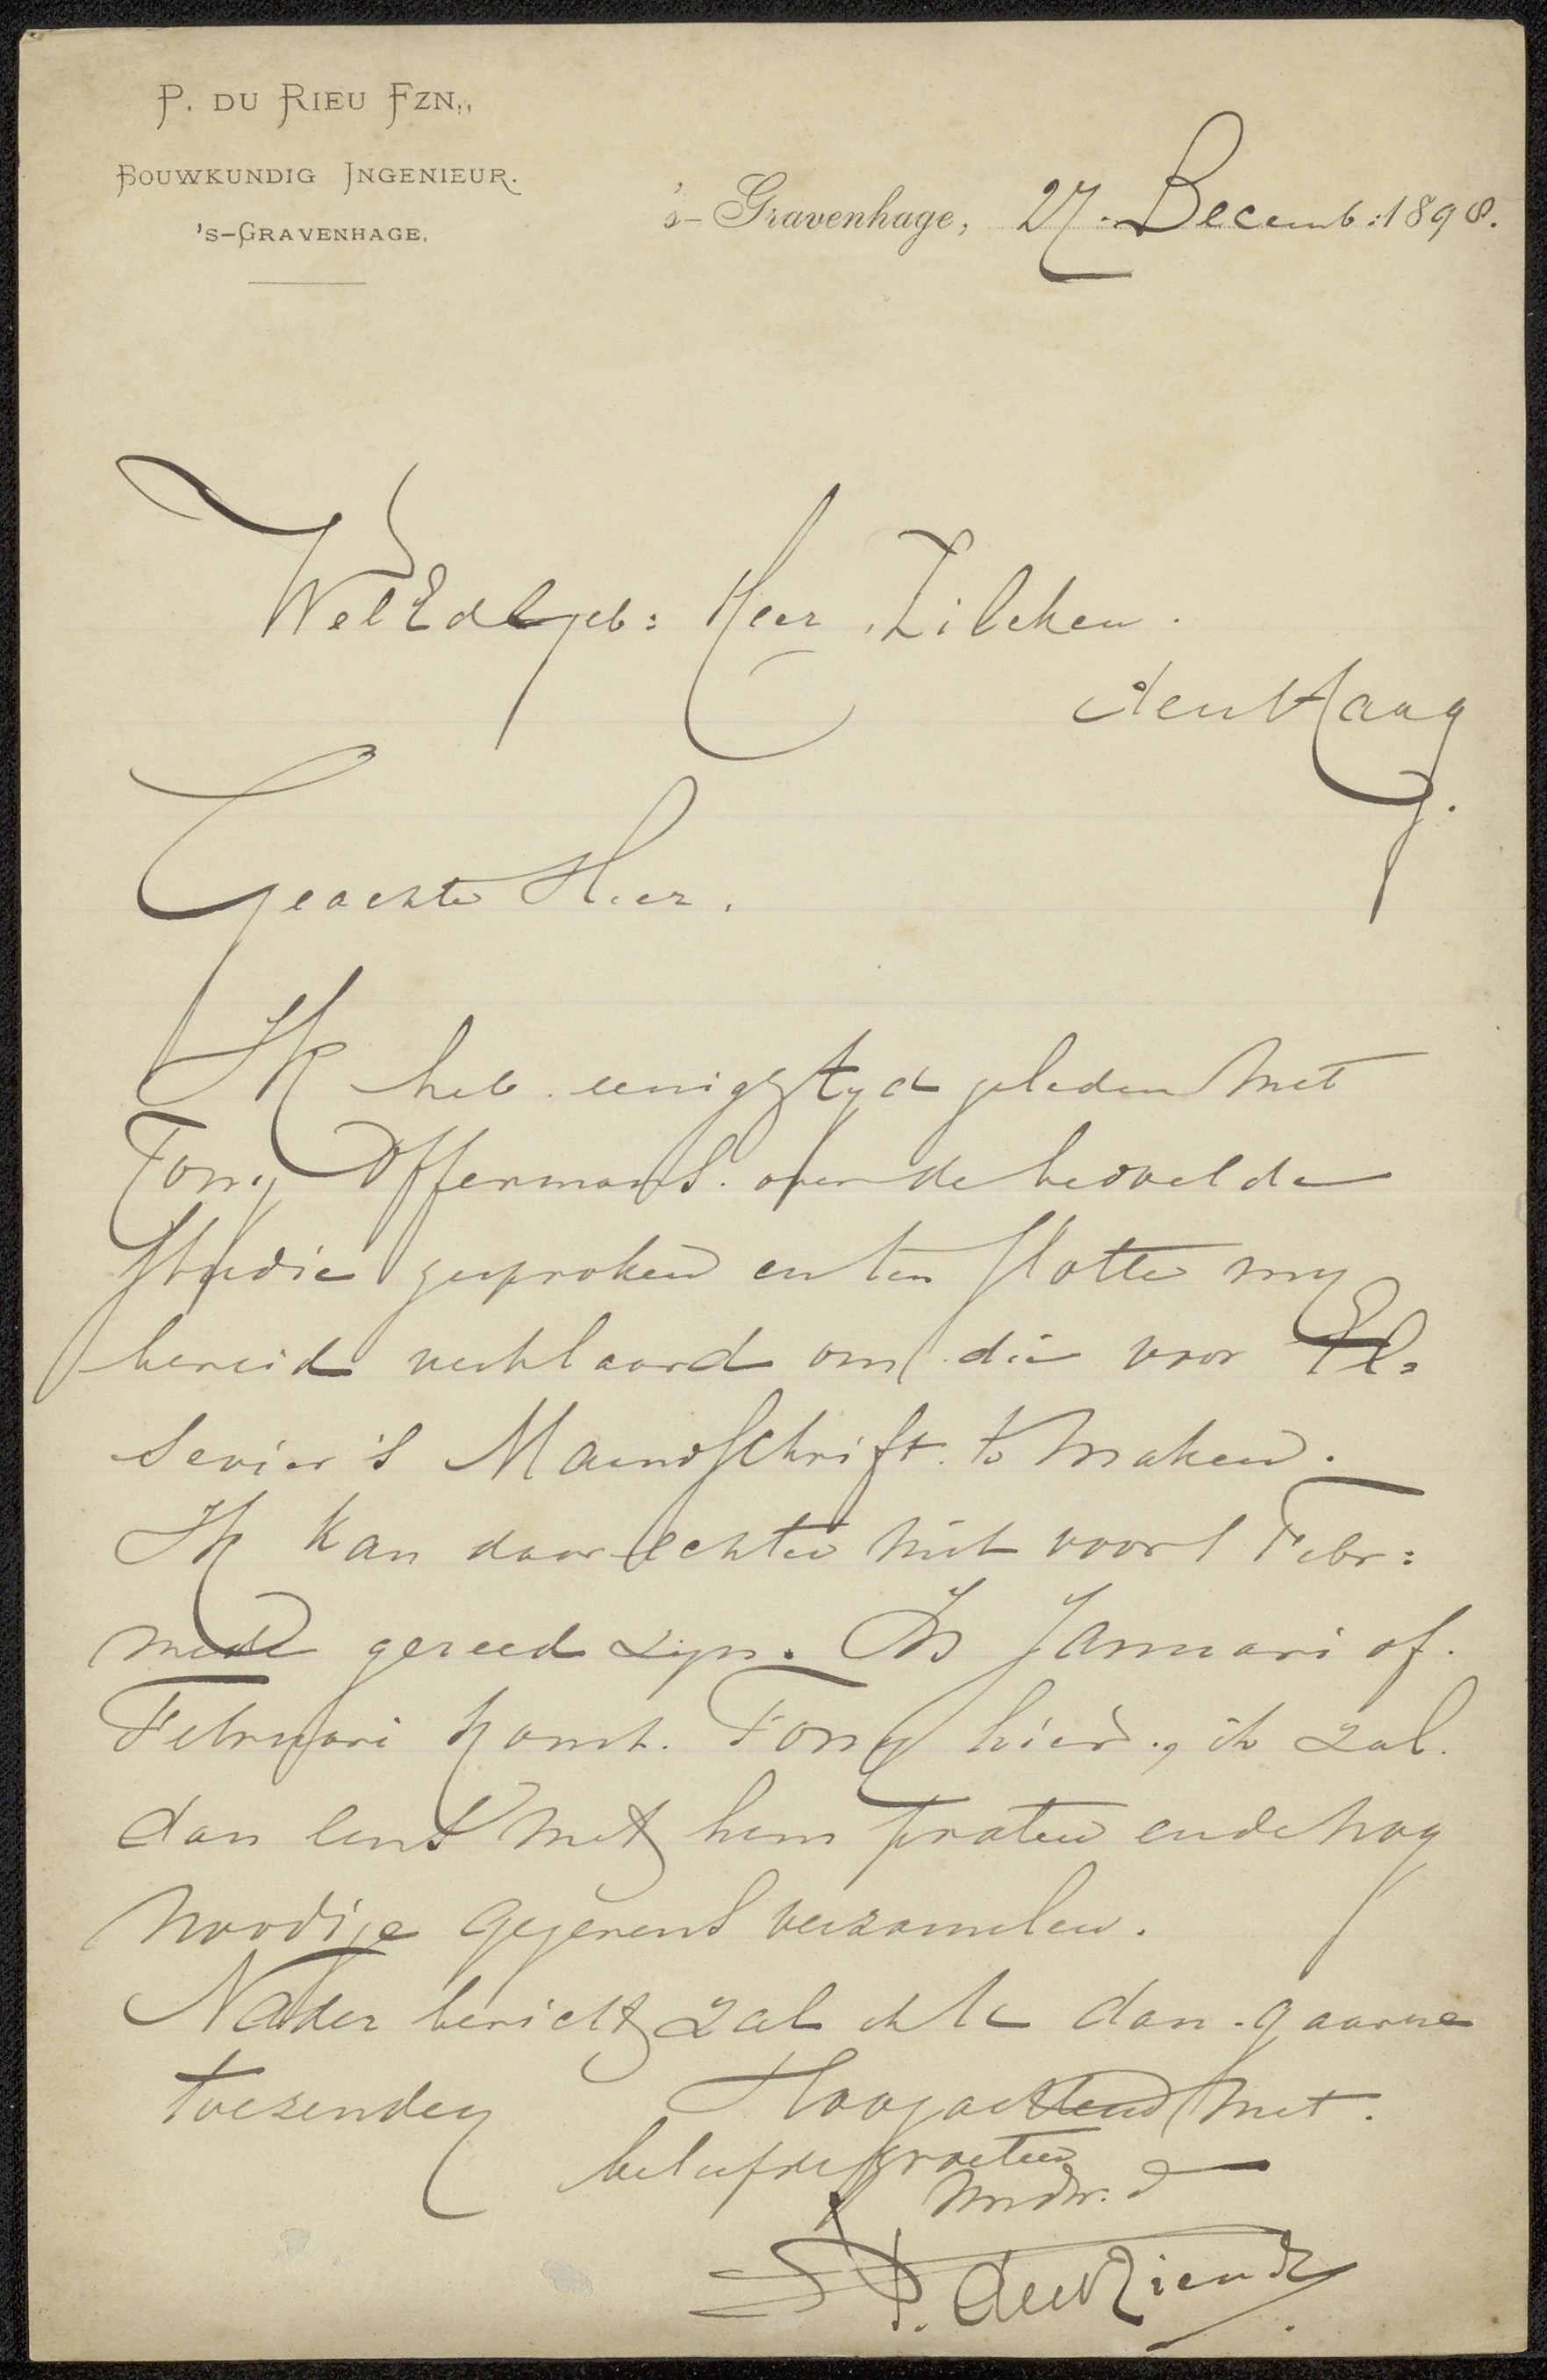 P. DU RIEU FZN.,
BOUWKUNDIG INGENIEUR.
'S-GRAVENHAGE.
's-Gravenhage, 27 Decemb: 1898.
WelEdelgeb: Heer Zilcken.
den Haag.
Geachte Heer.
Ik heb eenigz tyd geleden met
Tony Offermans over de bedoelde
studie gesproken en ten slotte my
bereid verklaard om die voor El=
sevier's Maandschrift te maken.
Ik kan daar echter niet voor 1 Febr:
mede gereed zyn. In Januari of
Februari komt Tony hier, ik zal
dan eens met hem praten en de nog
noodige gegevens verzamelen.
Nader bericht zal ik U dan gaarne
toezenden Hoogachtend met
beleefde groeten
P. du Rieu Fz